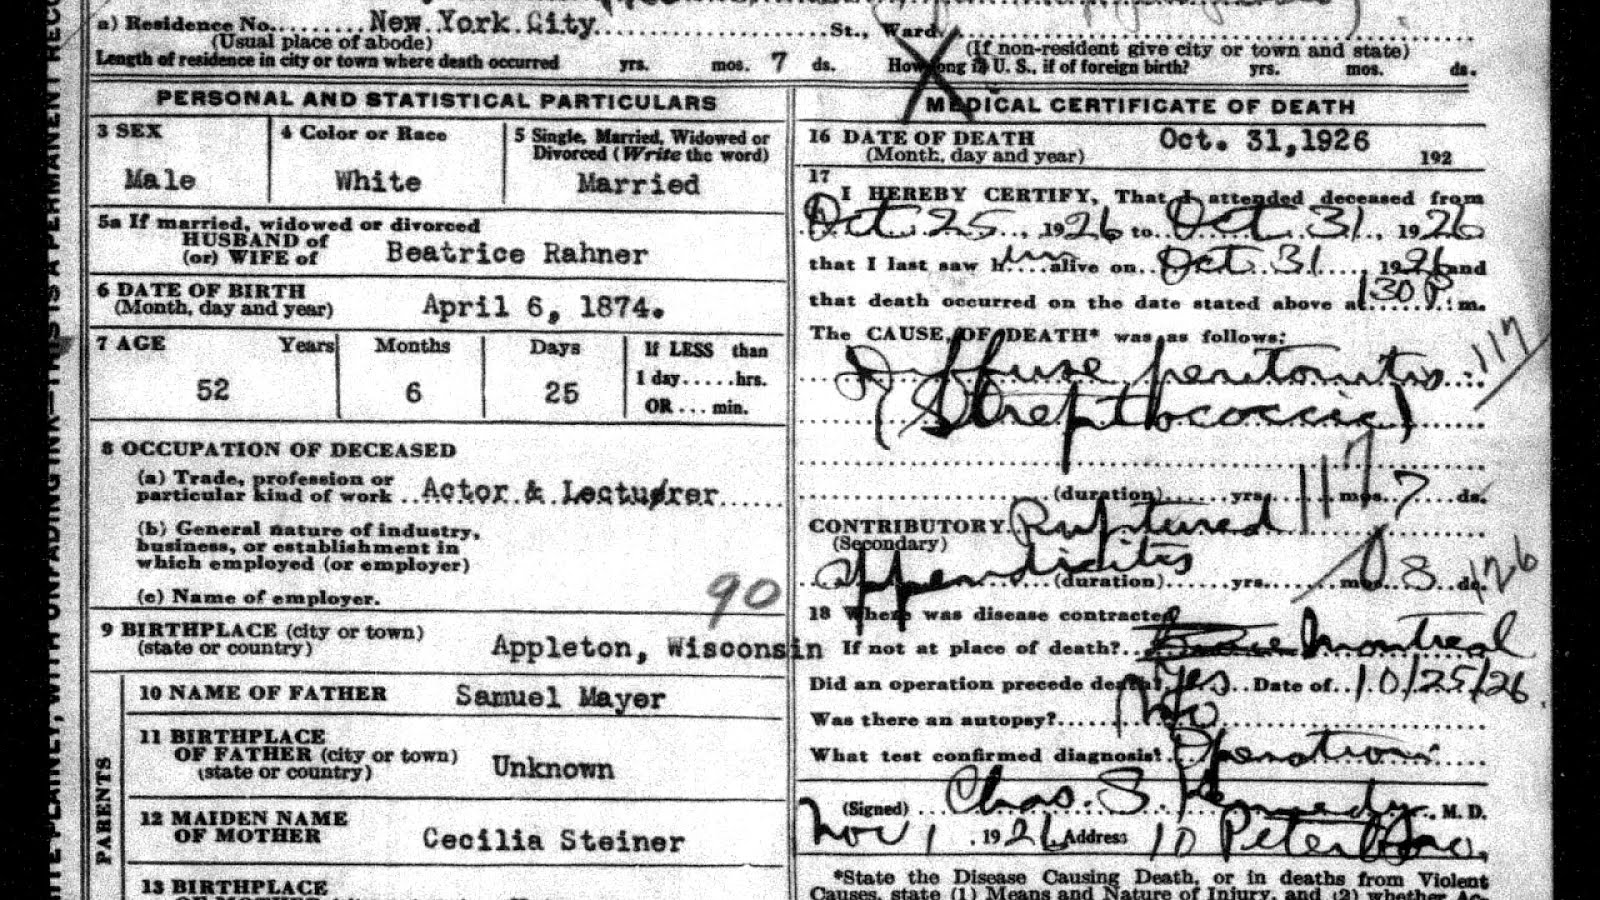 a) Residence No......... New York City ........ St., Ward
(Usual place of abode)
(If non-resident give city or town and state)
Length of residence in city or town where death occurred yrs. mos. 7 ds. How long in U. S., if of foreign birth? yrs. mos. ds.
PERSONAL AND STATISTICAL PARTICULARS
3 SEX
Male
4 Color or Race
White
5 Single, Married, Widowed or
Divorced (Write the word)
Married
5a If married, widowed or divorced
HUSBAND of
(or) WIFE of Beatrice Rahner
6 DATE OF BIRTH
(Month, day and year) April 6, 1874.
7 AGE Years Months Days If LESS than
1 day.....hrs.
52 6 25
OR ... min.
8 OCCUPATION OF DECEASED
(a) Trade, profession or
particular kind of work .. Actor & Lecturer
(b) General nature of industry,
business, or establishment in
which employed (or employer)
(c) Name of employer.
90
9 BIRTHPLACE (city or town)
(state or country) Appleton, Wisconsin
PARENTS
10 NAME OF FATHER Samuel Mayer
11 BIRTHPLACE
OF FATHER (city or town)
(state or country) Unknown
12 MAIDEN NAME
OF MOTHER Cecilia Steiner
13 BIRTHPLACE
MEDICAL CERTIFICATE OF DEATH
16 DATE OF DEATH Oct. 31,1926
(Month, day and year) 192
17
I HEREBY CERTIFY, That I attended deceased from
Oct. 25, 1926 to Oct 31, 1926
that I last saw him alive on Oct 31, 1926 and
that death occurred on the date stated above at 130 P. m.
The CAUSE OF DEATH* was as follows:
Diffuse peritonitis 117
(Streptococcic)
117
(duration)......yrs. mos. 7 ds.
CONTRIBUTORY Ruptured
(Secondary)
appendicitis (duration)......yrs. mos. 8 ds. 126
18 Where was disease contracted
If not at place of death? Montreal
Did an operation precede death? Yes Date of 10/25/26
Was there an autopsy? No
What test confirmed diagnosis? Operation
(Signed) Chas. S. Kennedy M. D.
Nov 1, 1926 Address 10 Peterboro.
*State the Disease Causing Death, or in deaths from Violent
Causes, state (1) Means and Nature of Injury, and (2) whether Ac-
WRITE PLAINLY, WITH UNFADING INK—THIS IS A PERMANENT RECO